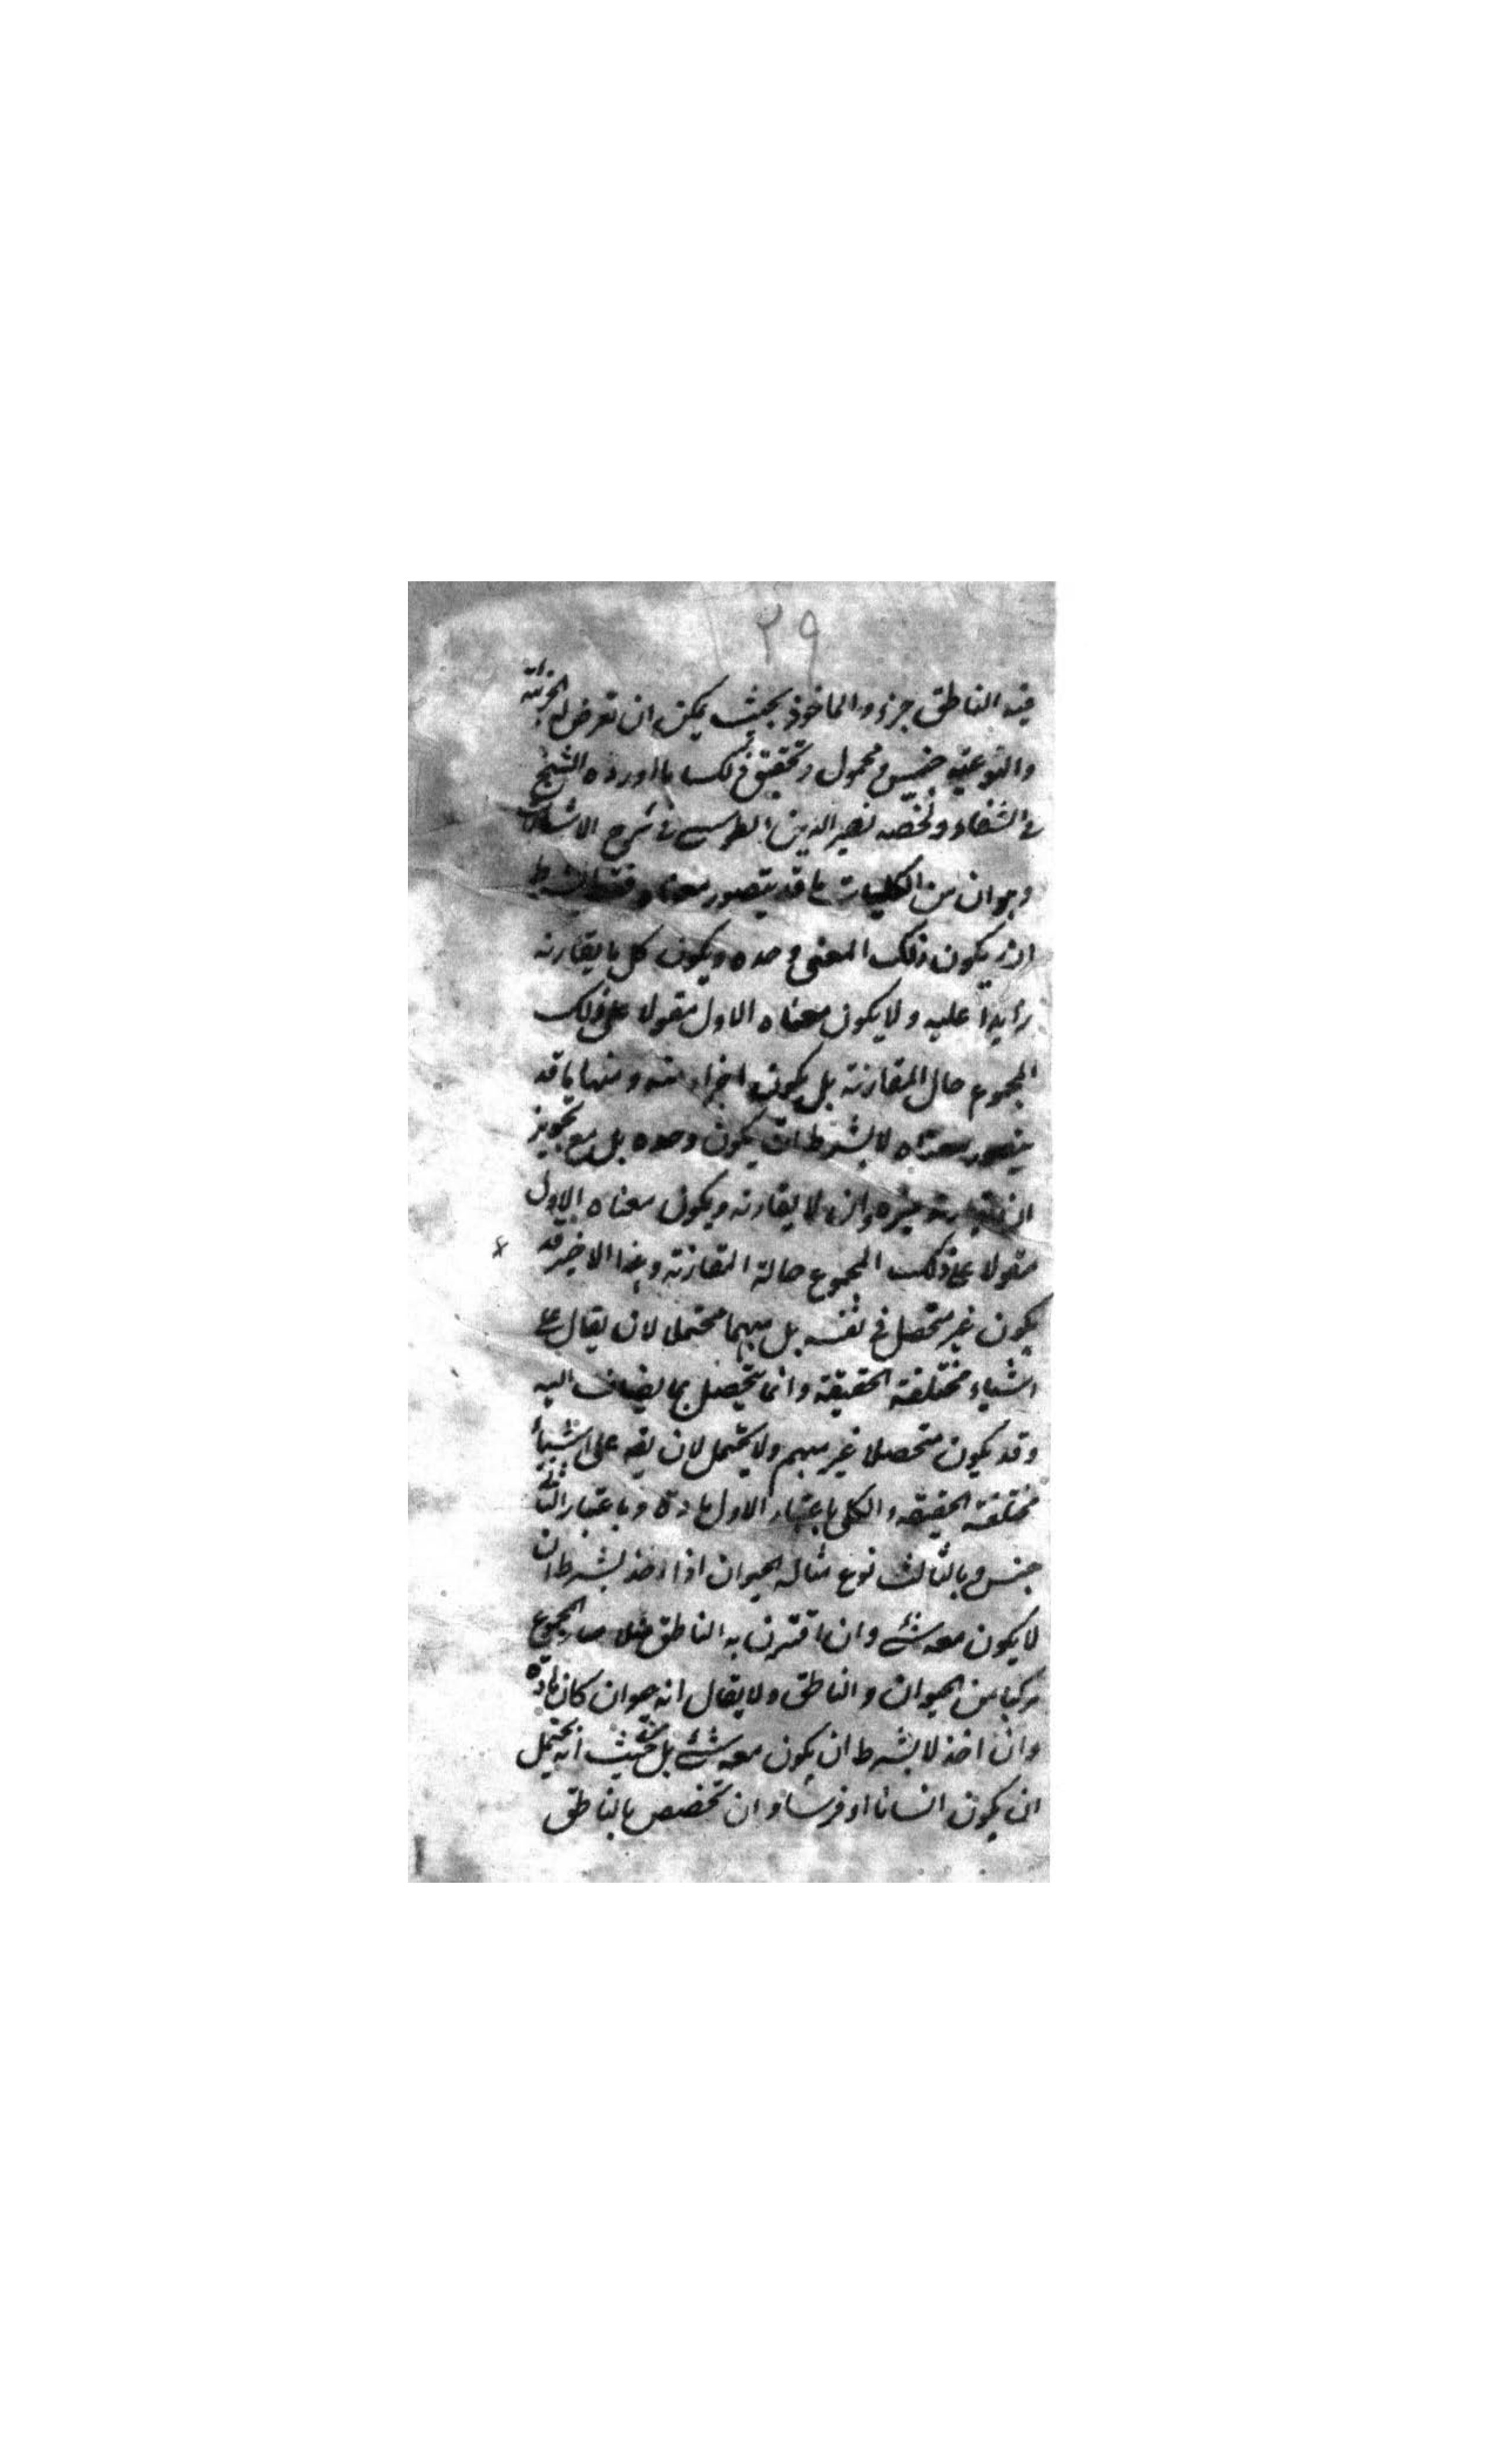 ٢٩
فيه الناطق جزء والماخوذ بحيث يمكن ان تعرض له الجزئية
والنوعية جنس ومحمول وتحقيق ذلك ما اورده الشيخ
في الشفاء ولخصه نصير الدين الطوسي في شرح الاشارات
وهو ان من الكليات ما قد يتصور معناه فقط بشرط
ان يكون ذلك المعنى وحده ويكون كل ما يقارنه
زايدا عليه ولا يكون معناه الاول مقولا على ذلك
المجموع حال المقارنة بل يكون جزاء منه ومنها ما قد
يتصور معناه لا بشرط ان يكون وحده بل مع تجويز
ان يقارنه غيره وان لا يقارنه ويكون معناه الاول
مقولا على ذلك المجموع حالة المقارنة وهذا الاخير قد
يكون غير متحصل في نفسه بل مبهما محتملا لان يقال على
اشياء مختلفة الحقيقة وانما يتحصل بما يضاف اليه
وقد يكون متحصلا غير مبهم ولا يحتمل لان يقه على اشياء
مختلفة الحقيقه والكلي باعتبار الاول مادة وباعتبار الثاني
جنس وبالثالث نوع مثاله الحيوان اذا اخذ بشرط ان
لا يكون معه شئ وان اقترن به الناطق مثلا صار المجموع
مركبا من الحيوان والناطق ولا يقال انه حيوان كان مادة
وان اخذ لا بشرط ان يكون معه شئ بل من حيث انه يحتمل
ان يكون انسانا او فرسا وان تخصص بالناطق